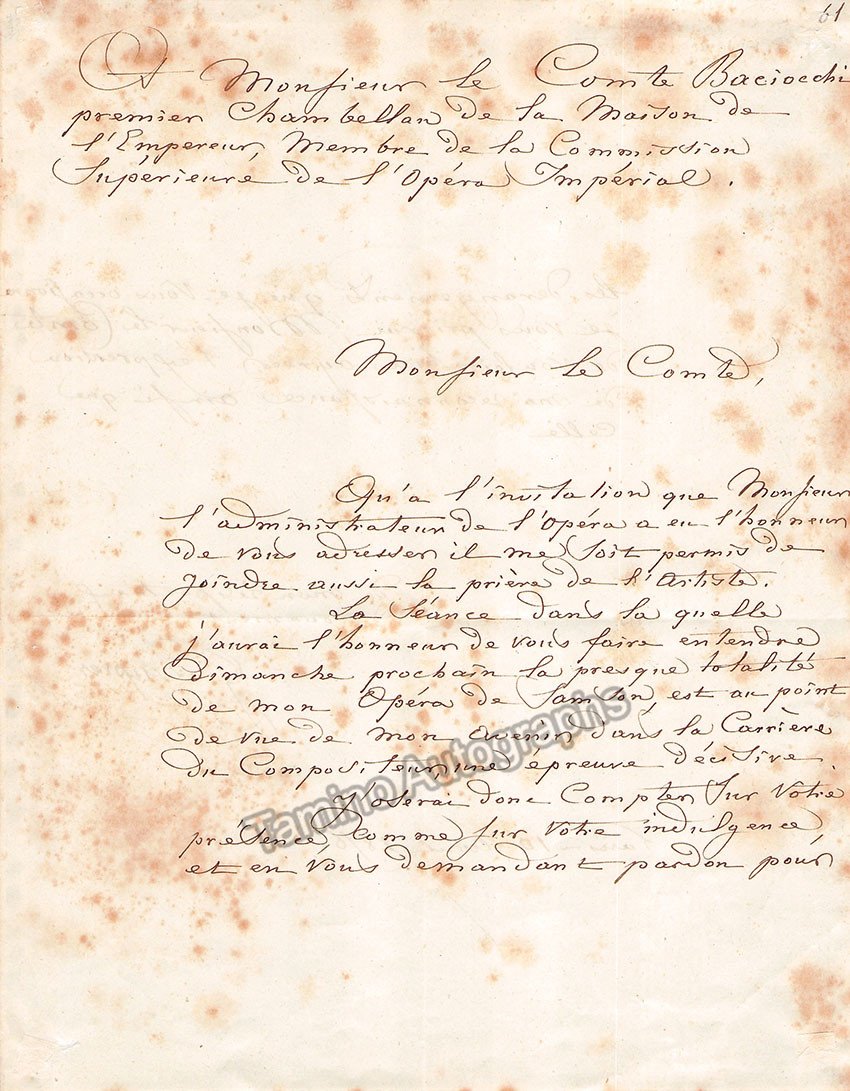 61
A Monsieur le Comte Baciocchi
premier Chambellan de la Maison de
l'Empereur, Membre de la Commission
Supérieure de l'Opéra Impérial.
Monsieur le Comte,
Qu'a l'invitation que Monsieur
l'administrateur de l'Opéra a eu l'honneur
de vous adresser il me soit permis de
joindre aussi la prière de l'Artiste.
La Séance dans la quelle
j'aurai l'honneur de vous faire entendre
Dimanche prochain la presque totalité
de mon Opéra de Samson, est au point
de vue de mon avenir dans la Carrière
du Compositeur, une épreuve décisive.
J'oserai donc Compter Sur Votre
présence, Comme sur votre indulgence,
et en Vous demandant pardon pour
Tamino Autographs